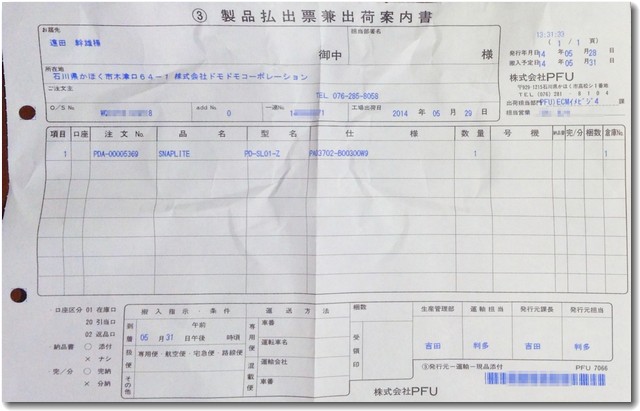 ③ 製品払出票兼出荷案内書
お届先
遠田 幹雄様
御中
担当部署名
様
13:31:33
( 1 / 1 頁)
発行年月日 14年 05月 28日
搬入予定日 14年 05月 31日
所在地
石川県かほく市木津ロ64-1 株式会社ドモドモコーポレーション
ご注文主
TEL 076-285-8058
株式会社PFU
〒929-1215石川県かほく市高松シ1番地
出荷担当部署 PFU)ECM(メビジ4
担当営業
O/S No.
add No. 0
一連No.
工場出荷日 2014 年 05 月 29 日
項目 口座 注文No. 品名 型名 仕様 数量 号機 納品書 完/分 梱数 倉庫No.
1 PDA-00005369 SNAPLITE PD-SL01-Z PA03702-B00300W9 1 1
口座区分 01 在庫口
20 引当口
02 返品口
納品書 ○ 添付
× ナシ
完/分 ○ 完納
× 分納
搬入指示・条件
到着 05月 31日 午前 午後 時頃
指定便 専用便・航空便・宅急便・路線便
その他
運送方法
専用便 車番
運転車名
混載便 運輸会社
車番
梱数
受領印
生産管理部 運輸担当 発行元課長 発行元担当
吉田 判多 吉田 判多
③発行元-運輸-現品添付
PFU 7066
株式会社PFU